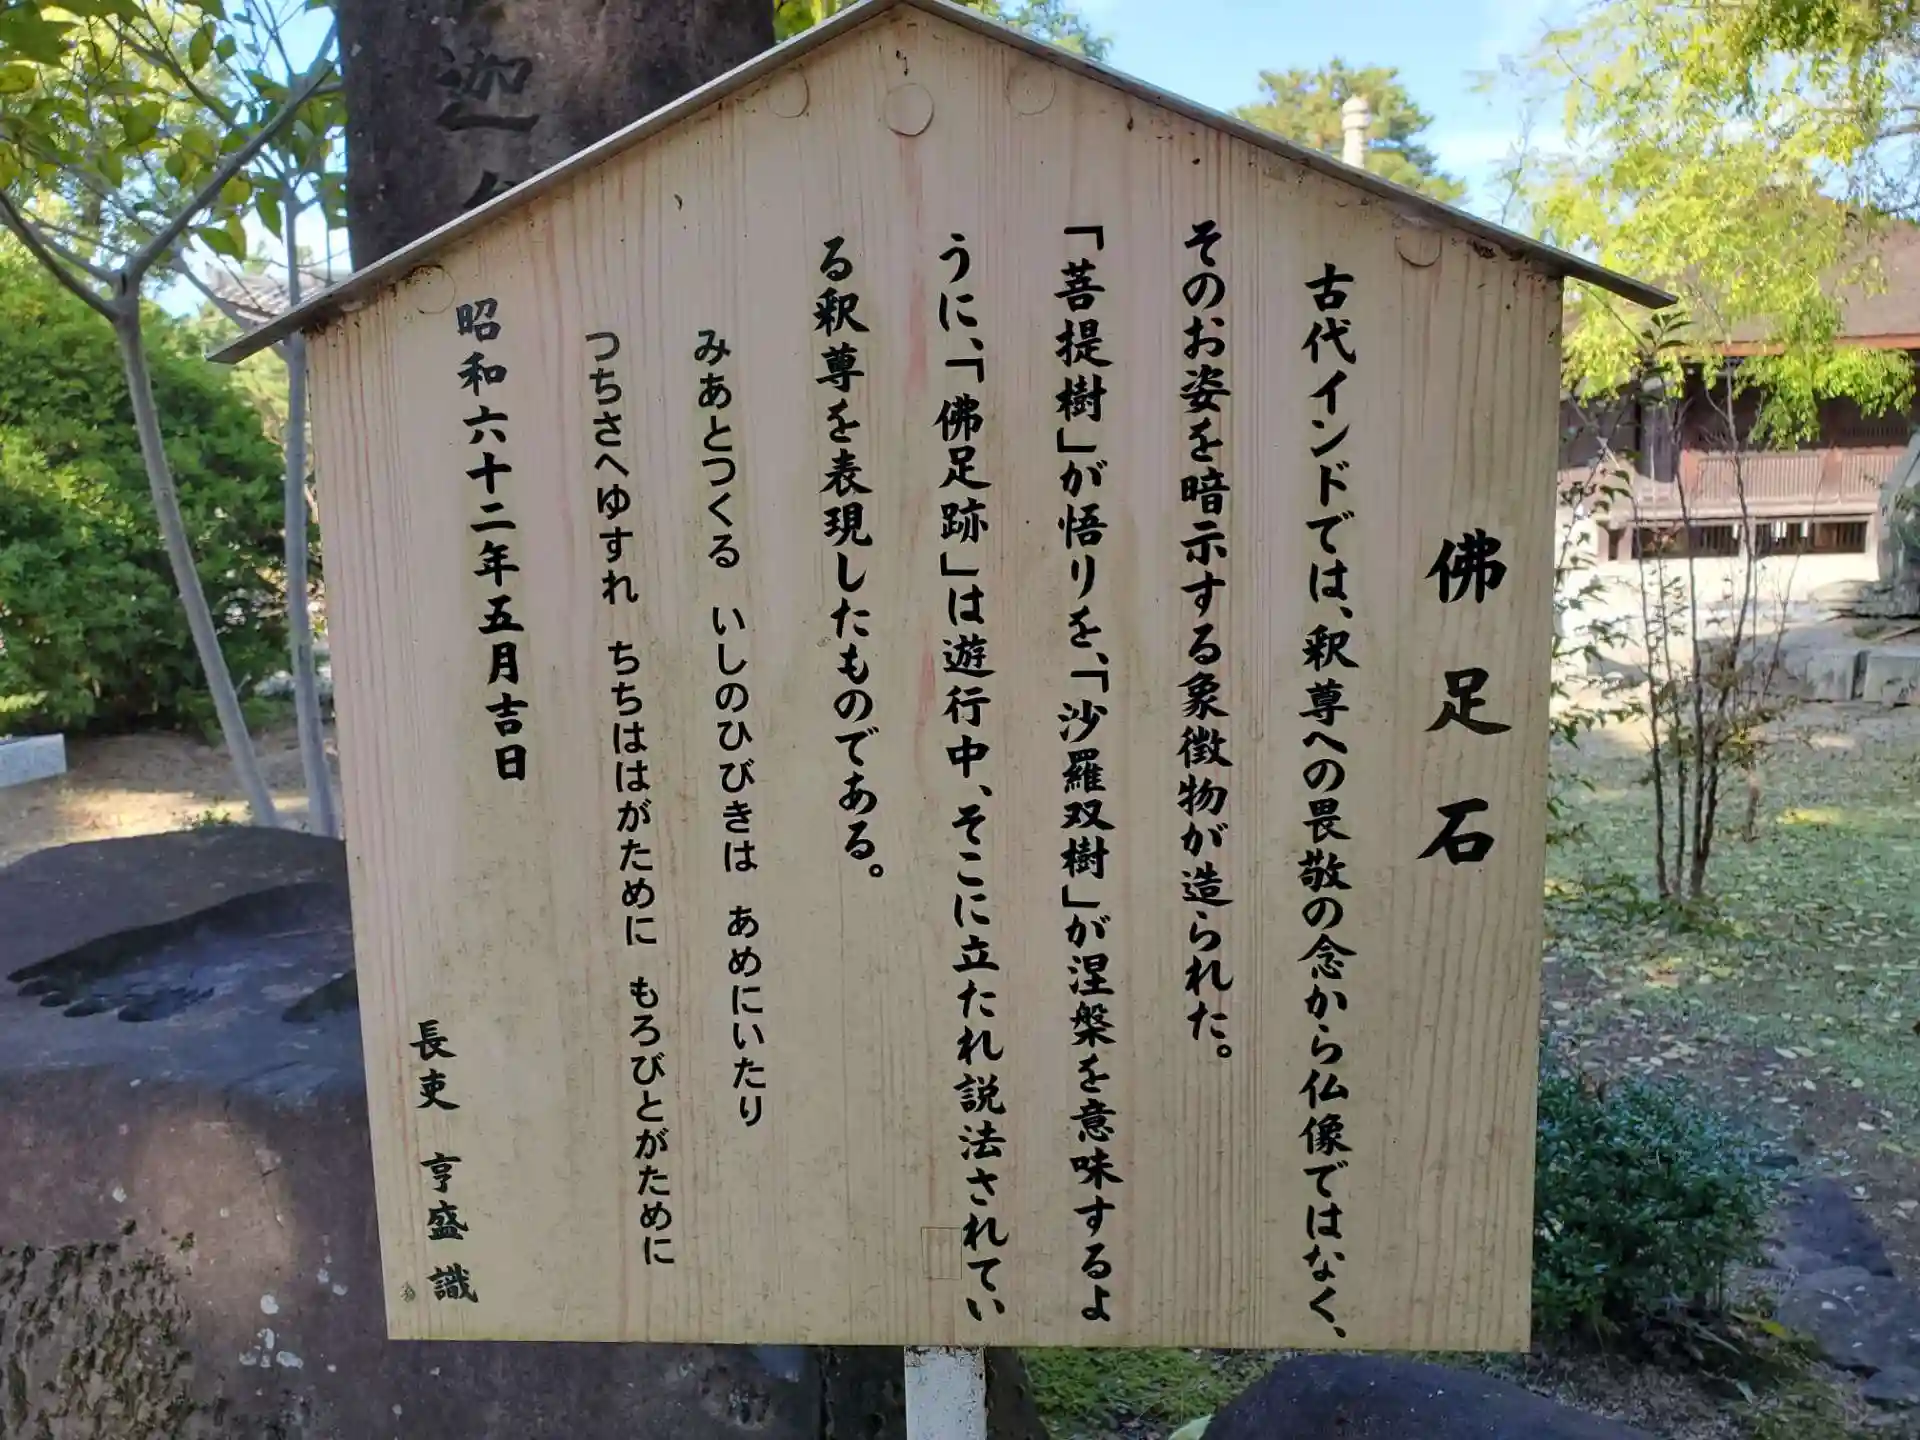 佛足石
古代インドでは、釈尊への畏敬の念から仏像ではなく、
そのお姿を暗示する象徴物が造られた。
「菩提樹」が悟りを、「沙羅双樹」が涅槃を意味するよ
うに、「佛足跡」は遊行中、そこに立たれ説法されてい
る釈尊を表現したものである。
みあとつくる いしのひびきは あめにいたり
つちさへゆすれ ちちははがために もろびとがために
昭和六十二年五月吉日
長吏 亨盛 識
迦